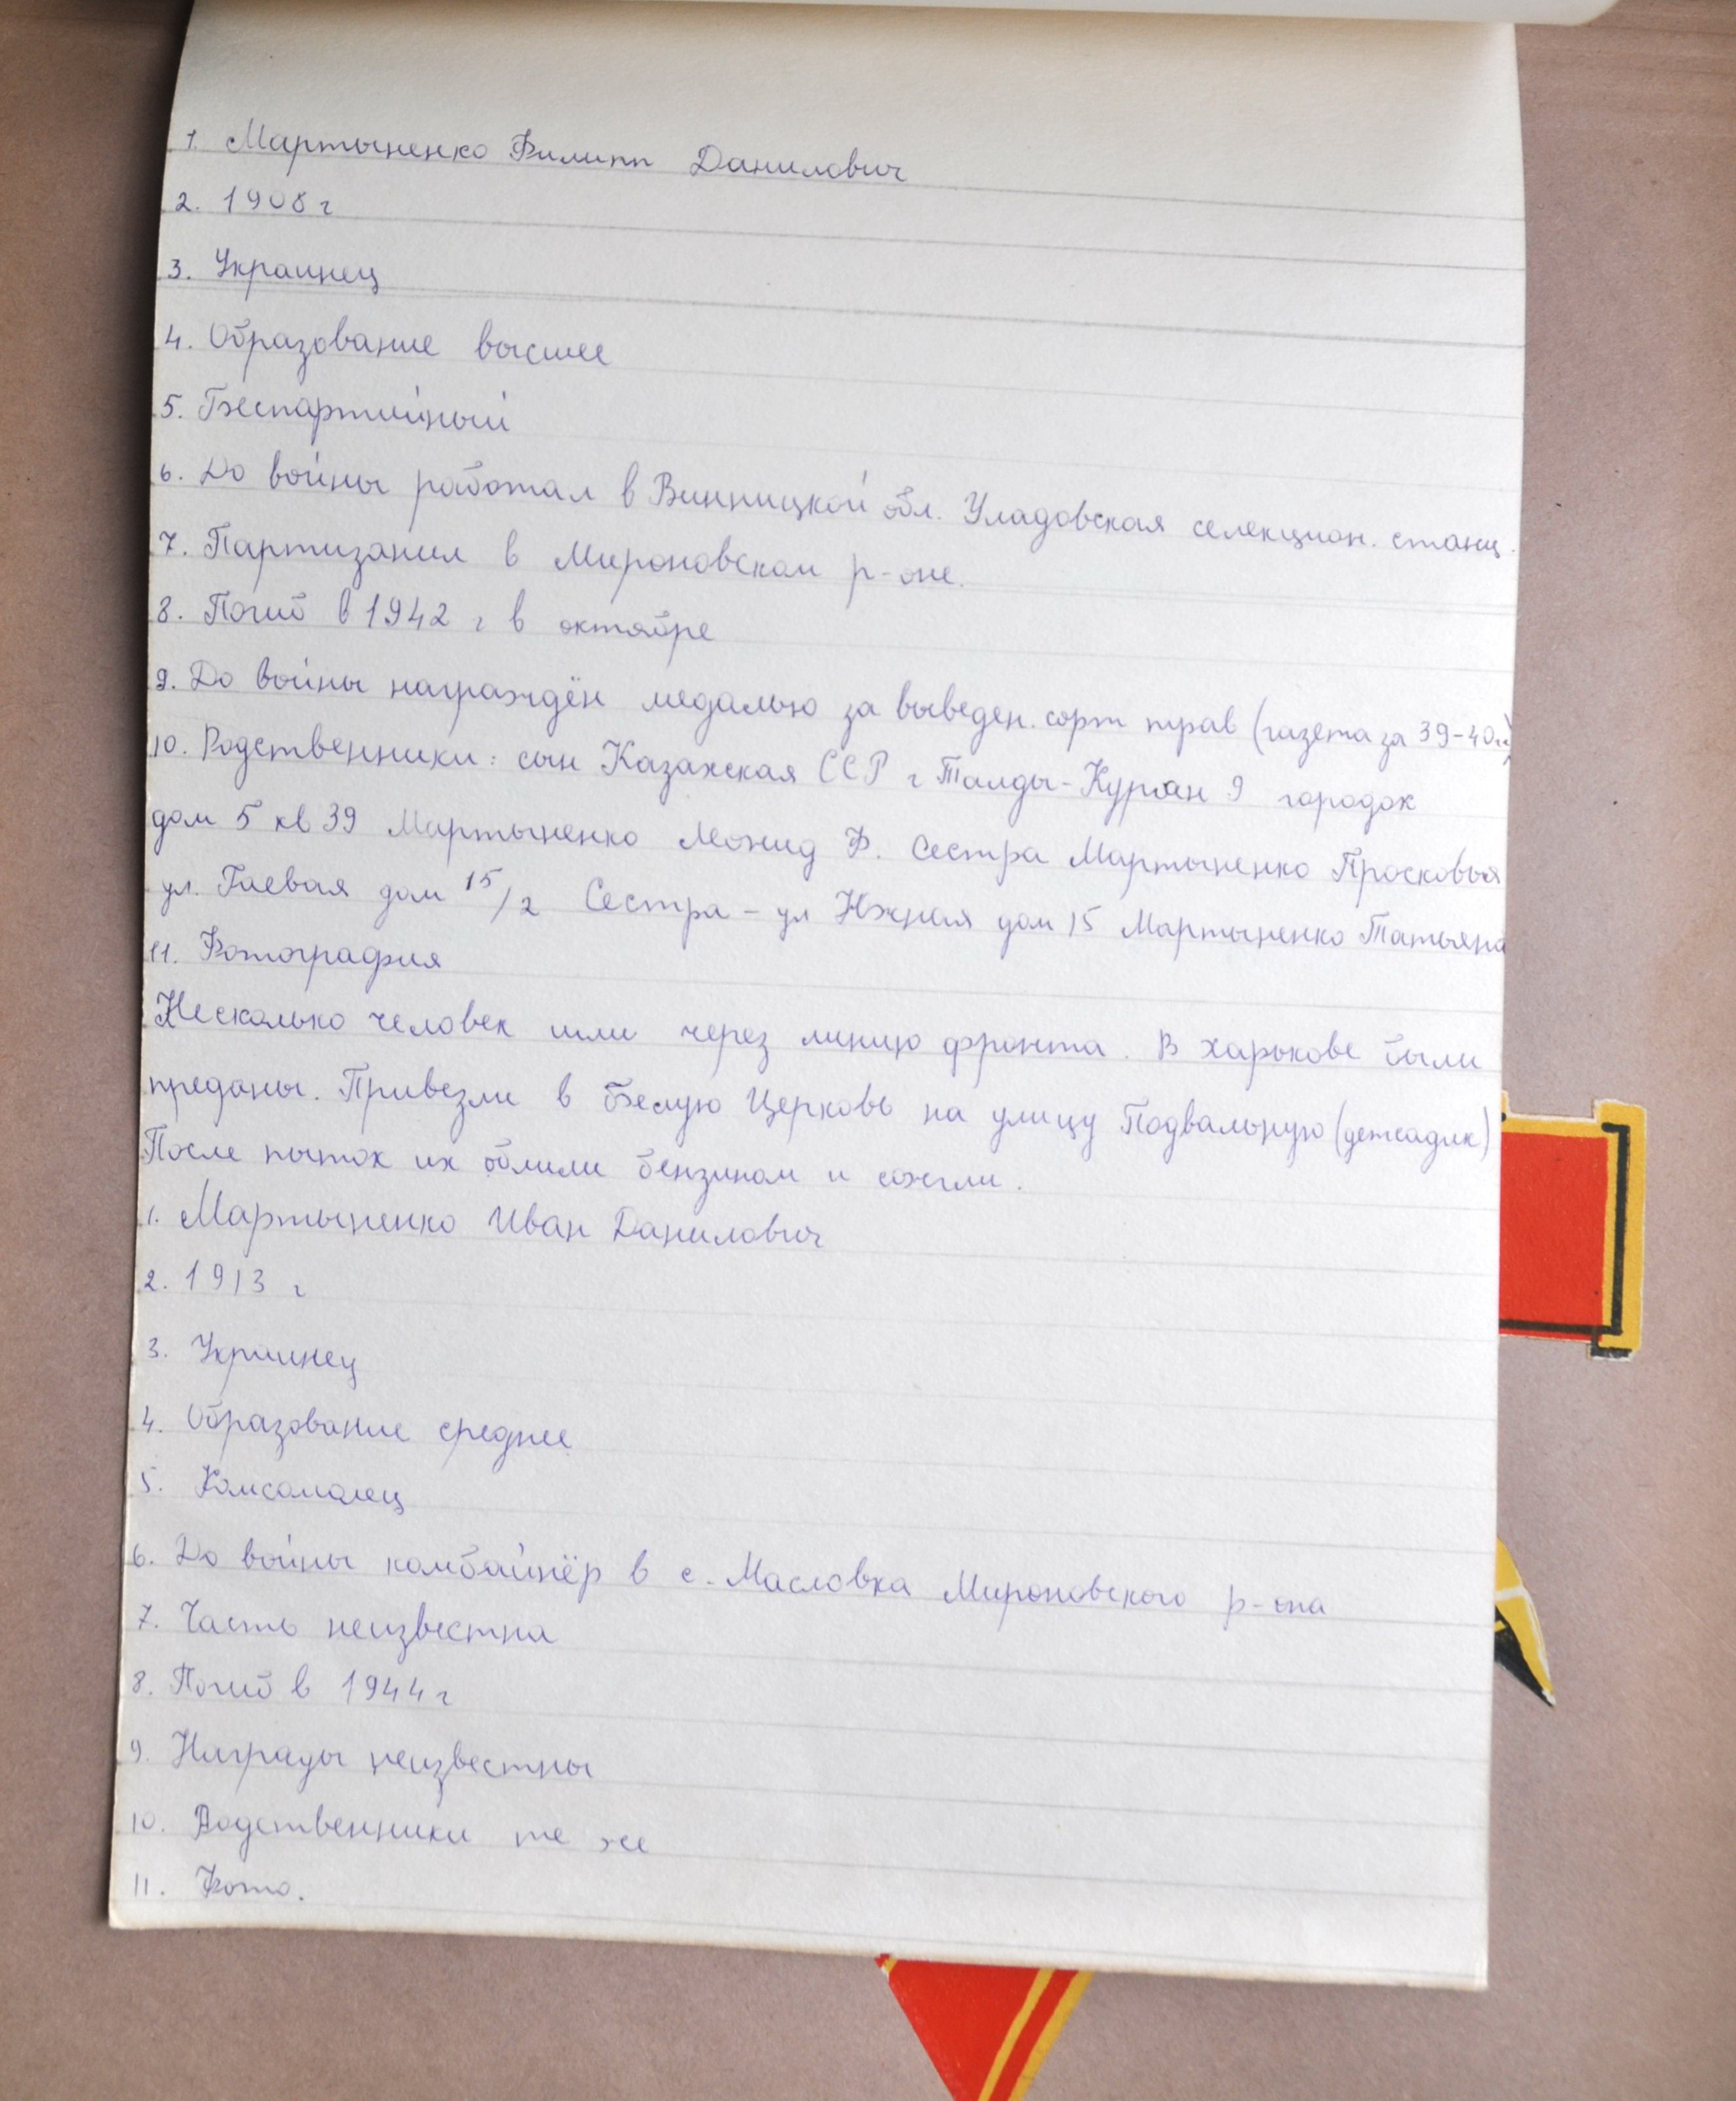 1. Мартыненко Филипп Данилович
2. 1908 г
3. Украинец
4. Образование высшее
5. Беспартийный
6. До войны работал в Винницкой обл. Уладовская селекцион. станц.
7. Партизанил в Мироновском р-оне.
8. Погиб в 1942 г в октябре
9. До войны награждён медалью за выведен. сорт трав (газета за 39-40гг)
10. Родственники: сын Казахская ССР г Талды-Курган 9 городок
дом 5 кв 39 Мартыненко Леонид Ф. Сестра Мартыненко Просковья
ул. Гаевая дом 15/2 Сестра – ул Южная дом 15 Мартыненко Татьяна
11. Фотография
Несколько человек шли через линию фронта. В Харькове были
преданы. Привезли в Белую Церковь на улицу Подвальную (детсадик)
После пыток их облили бензином и сожгли.
1. Мартыненко Иван Данилович
2. 1913 г
3. Украинец
4. Образование среднее
5. Комсомолец
6. До войны комбайнёр в с. Масловка Мироновского р-она
7. Часть неизвестна
8. Погиб в 1944 г
9. Награды неизвестны
10. Родственники те же
11. Фото.